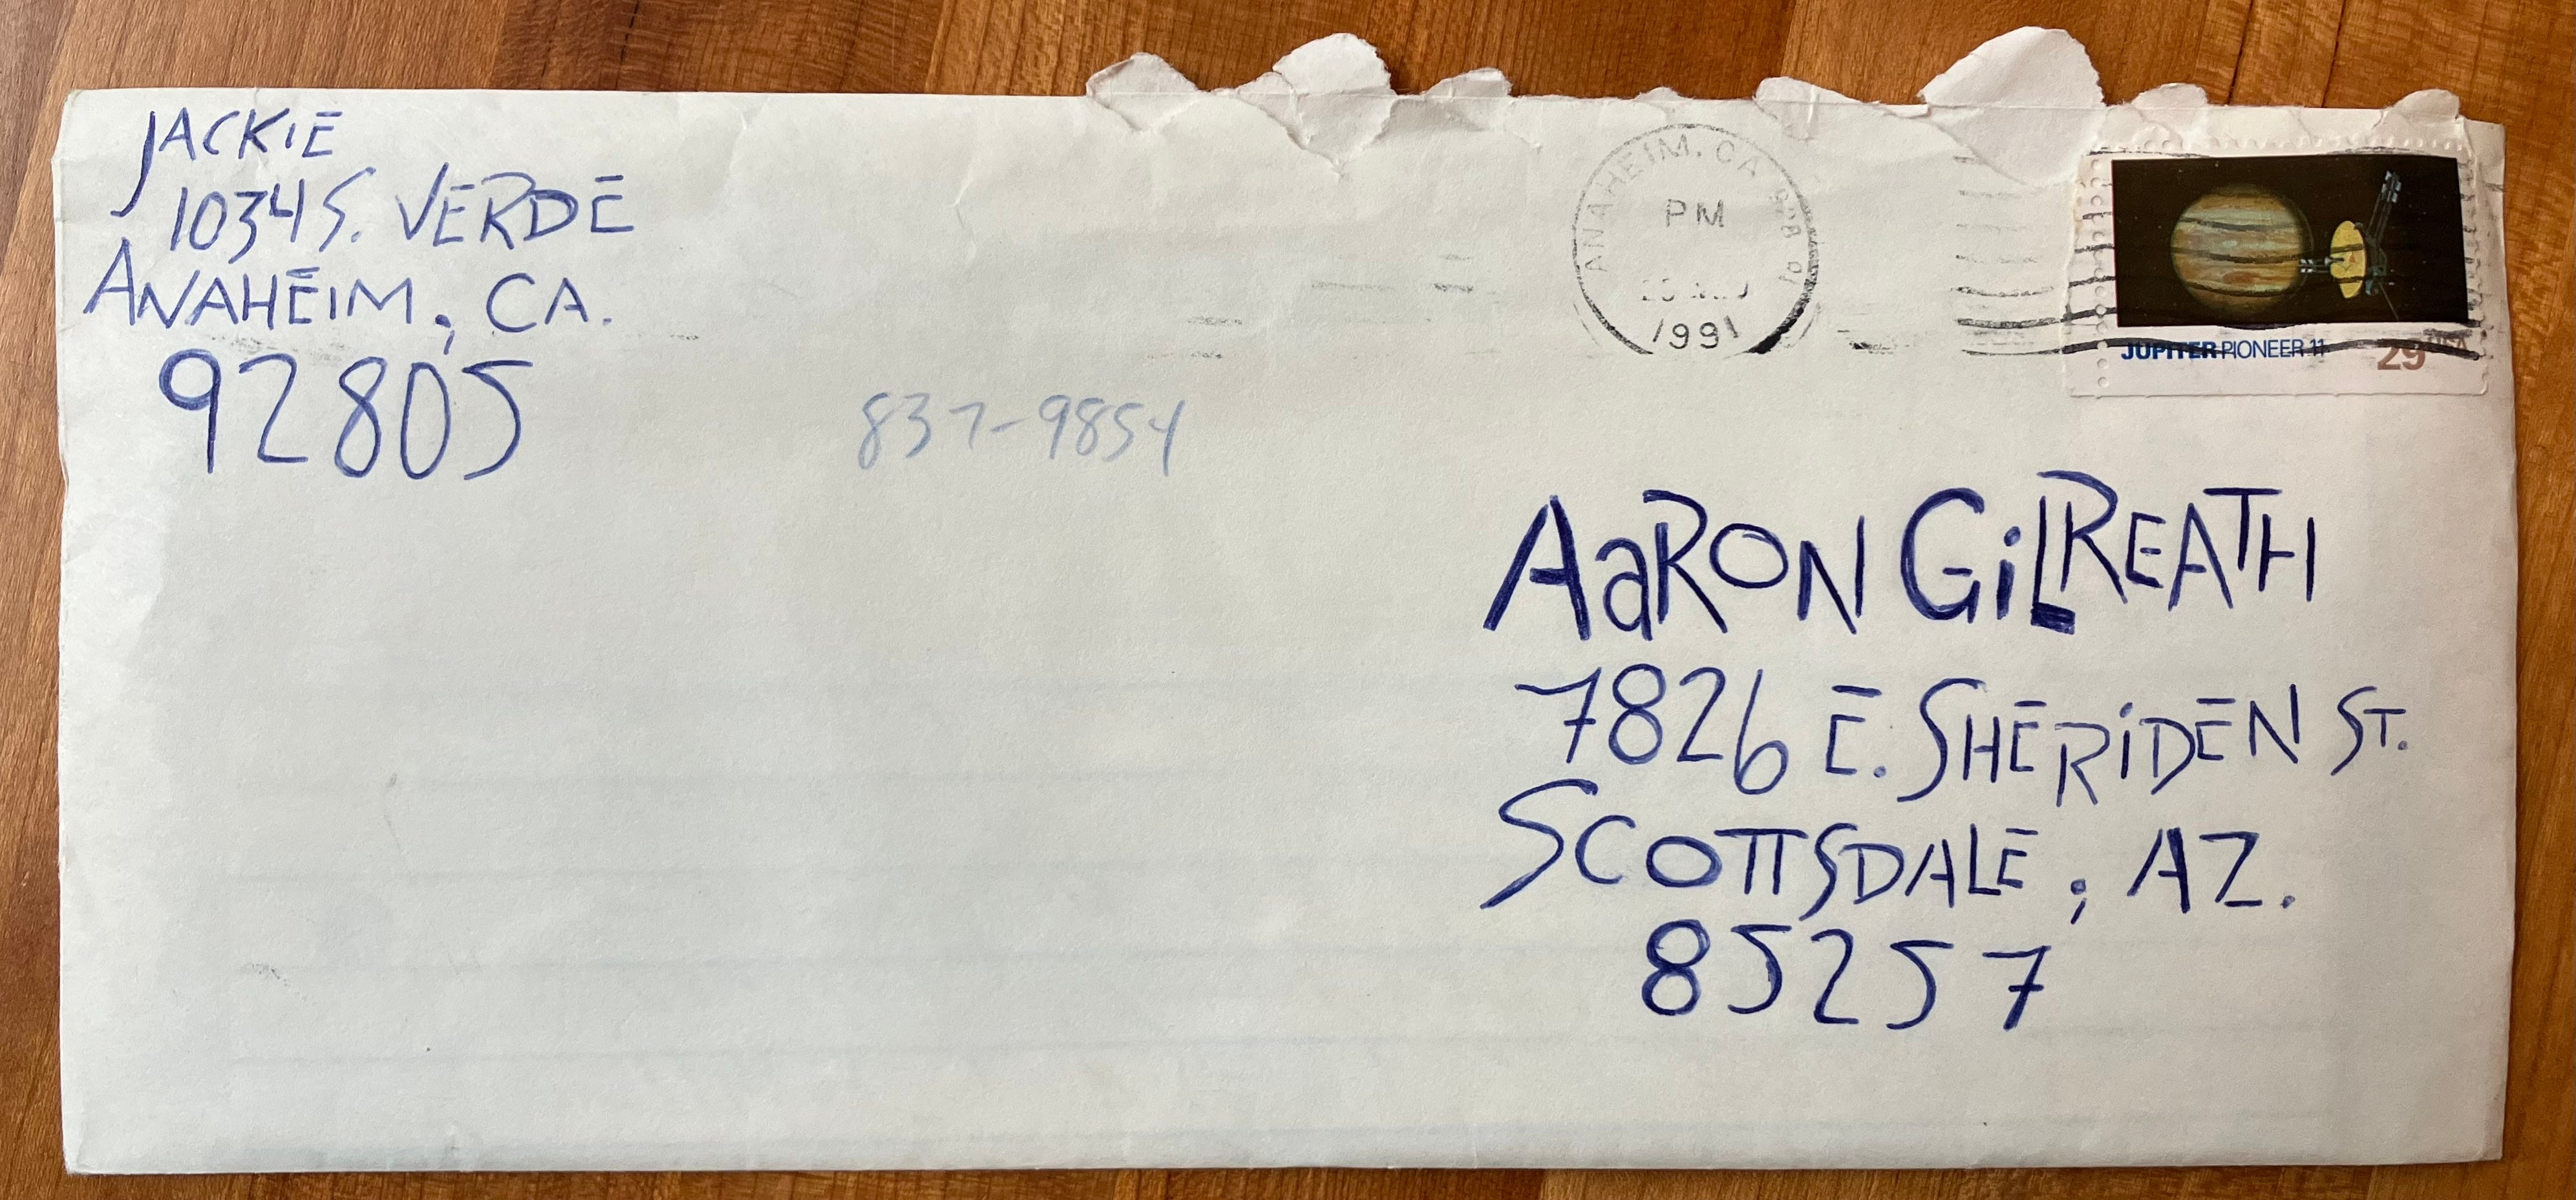 JACKIE
1034 S. VERDE
ANAHEIM, CA.
92805
ANAHEIM, CA 928
PM
1991
JUPITER PIONEER 11
29 USA
837-9854
AaRON GiLREATH
7826 E. SHERiDEN ST.
SCOTTSDALE, AZ.
85257